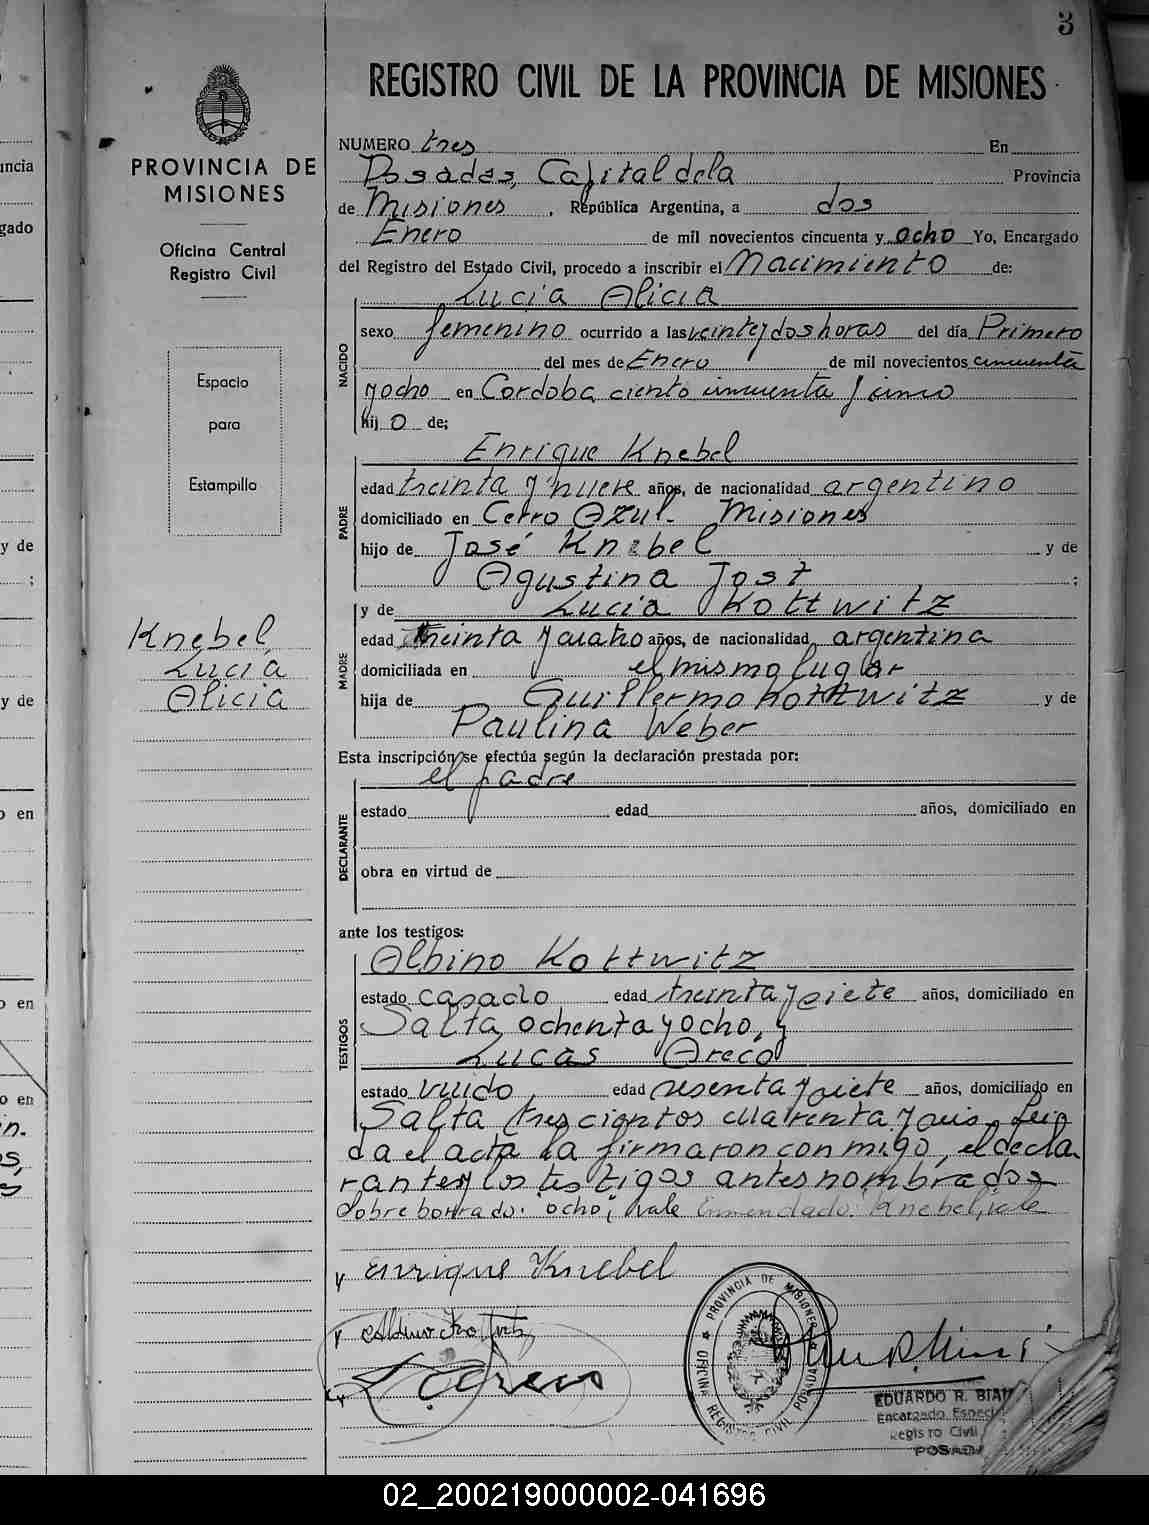 3
REGISTRO CIVIL DE LA PROVINCIA DE MISIONES
PROVINCIA DE
MISIONES
Oficina Central
Registro Civil
Espacio
para
Estampilla
Knebel
Lucia
Alicia
NUMERO tres En
Posadas, Capital dela Provincia
de Misiones , República Argentina, a dos
Enero de mil novecientos cincuenta y ocho Yo, Encargado
del Registro del Estado Civil, procedo a inscribir el Nacimiento de:
NACIDO
Lucia Alicia
sexo femenino ocurrido a las veinte y dos horas del día Primero
del mes de Enero de mil novecientos cincuenta
y ocho en Cordoba, ciento cincuenta y cinco
hij o de;
PADRE
Enrique Knebel
edad treinta y nueve años, de nacionalidad argentino
domiciliado en Cerro Azul. Misiones
hijo de José Knebel y de
Agustina Jost ;
MADRE
y de Lucia Kottwitz
edad treinta y cuatro años, de nacionalidad argentina
domiciliada en el mismo lugar
hija de Guillermo Kottwitz y de
Paulina Weber
Esta inscripción se efectúa según la declaración prestada por:
DECLARANTE
el padre
estado edad años, domiciliado en
obra en virtud de
ante los testigos:
TESTIGOS
Albino Kottwitz
estado casado edad treinta y siete años, domiciliado en
Salta, ochenta y ocho, y
Lucas Areco
estado viudo, edad sesenta y siete años, domiciliado en
Salta trescientos cuarenta y seis. Lei
da el acta la firmaron con migo, el decla
rante y los testigos antes nombrados
Sobre borrado: ocho; vale Enmendado: Knebel, vale
y Enrique Knebel
y Albino Kottwitz
y L. Areco
PROVINCIA DE MISIONES
OFICINA REGISTRO CIVIL POSADAS
EDUARDO R. BIAN
Encargado Especi
Registro Civil
POSADA
ncia
gado
y de
;
y de
o en
o en
o en
02_200219000002-041696